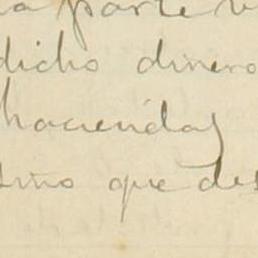 a parte
dicho dinero
haciendas
sino que des